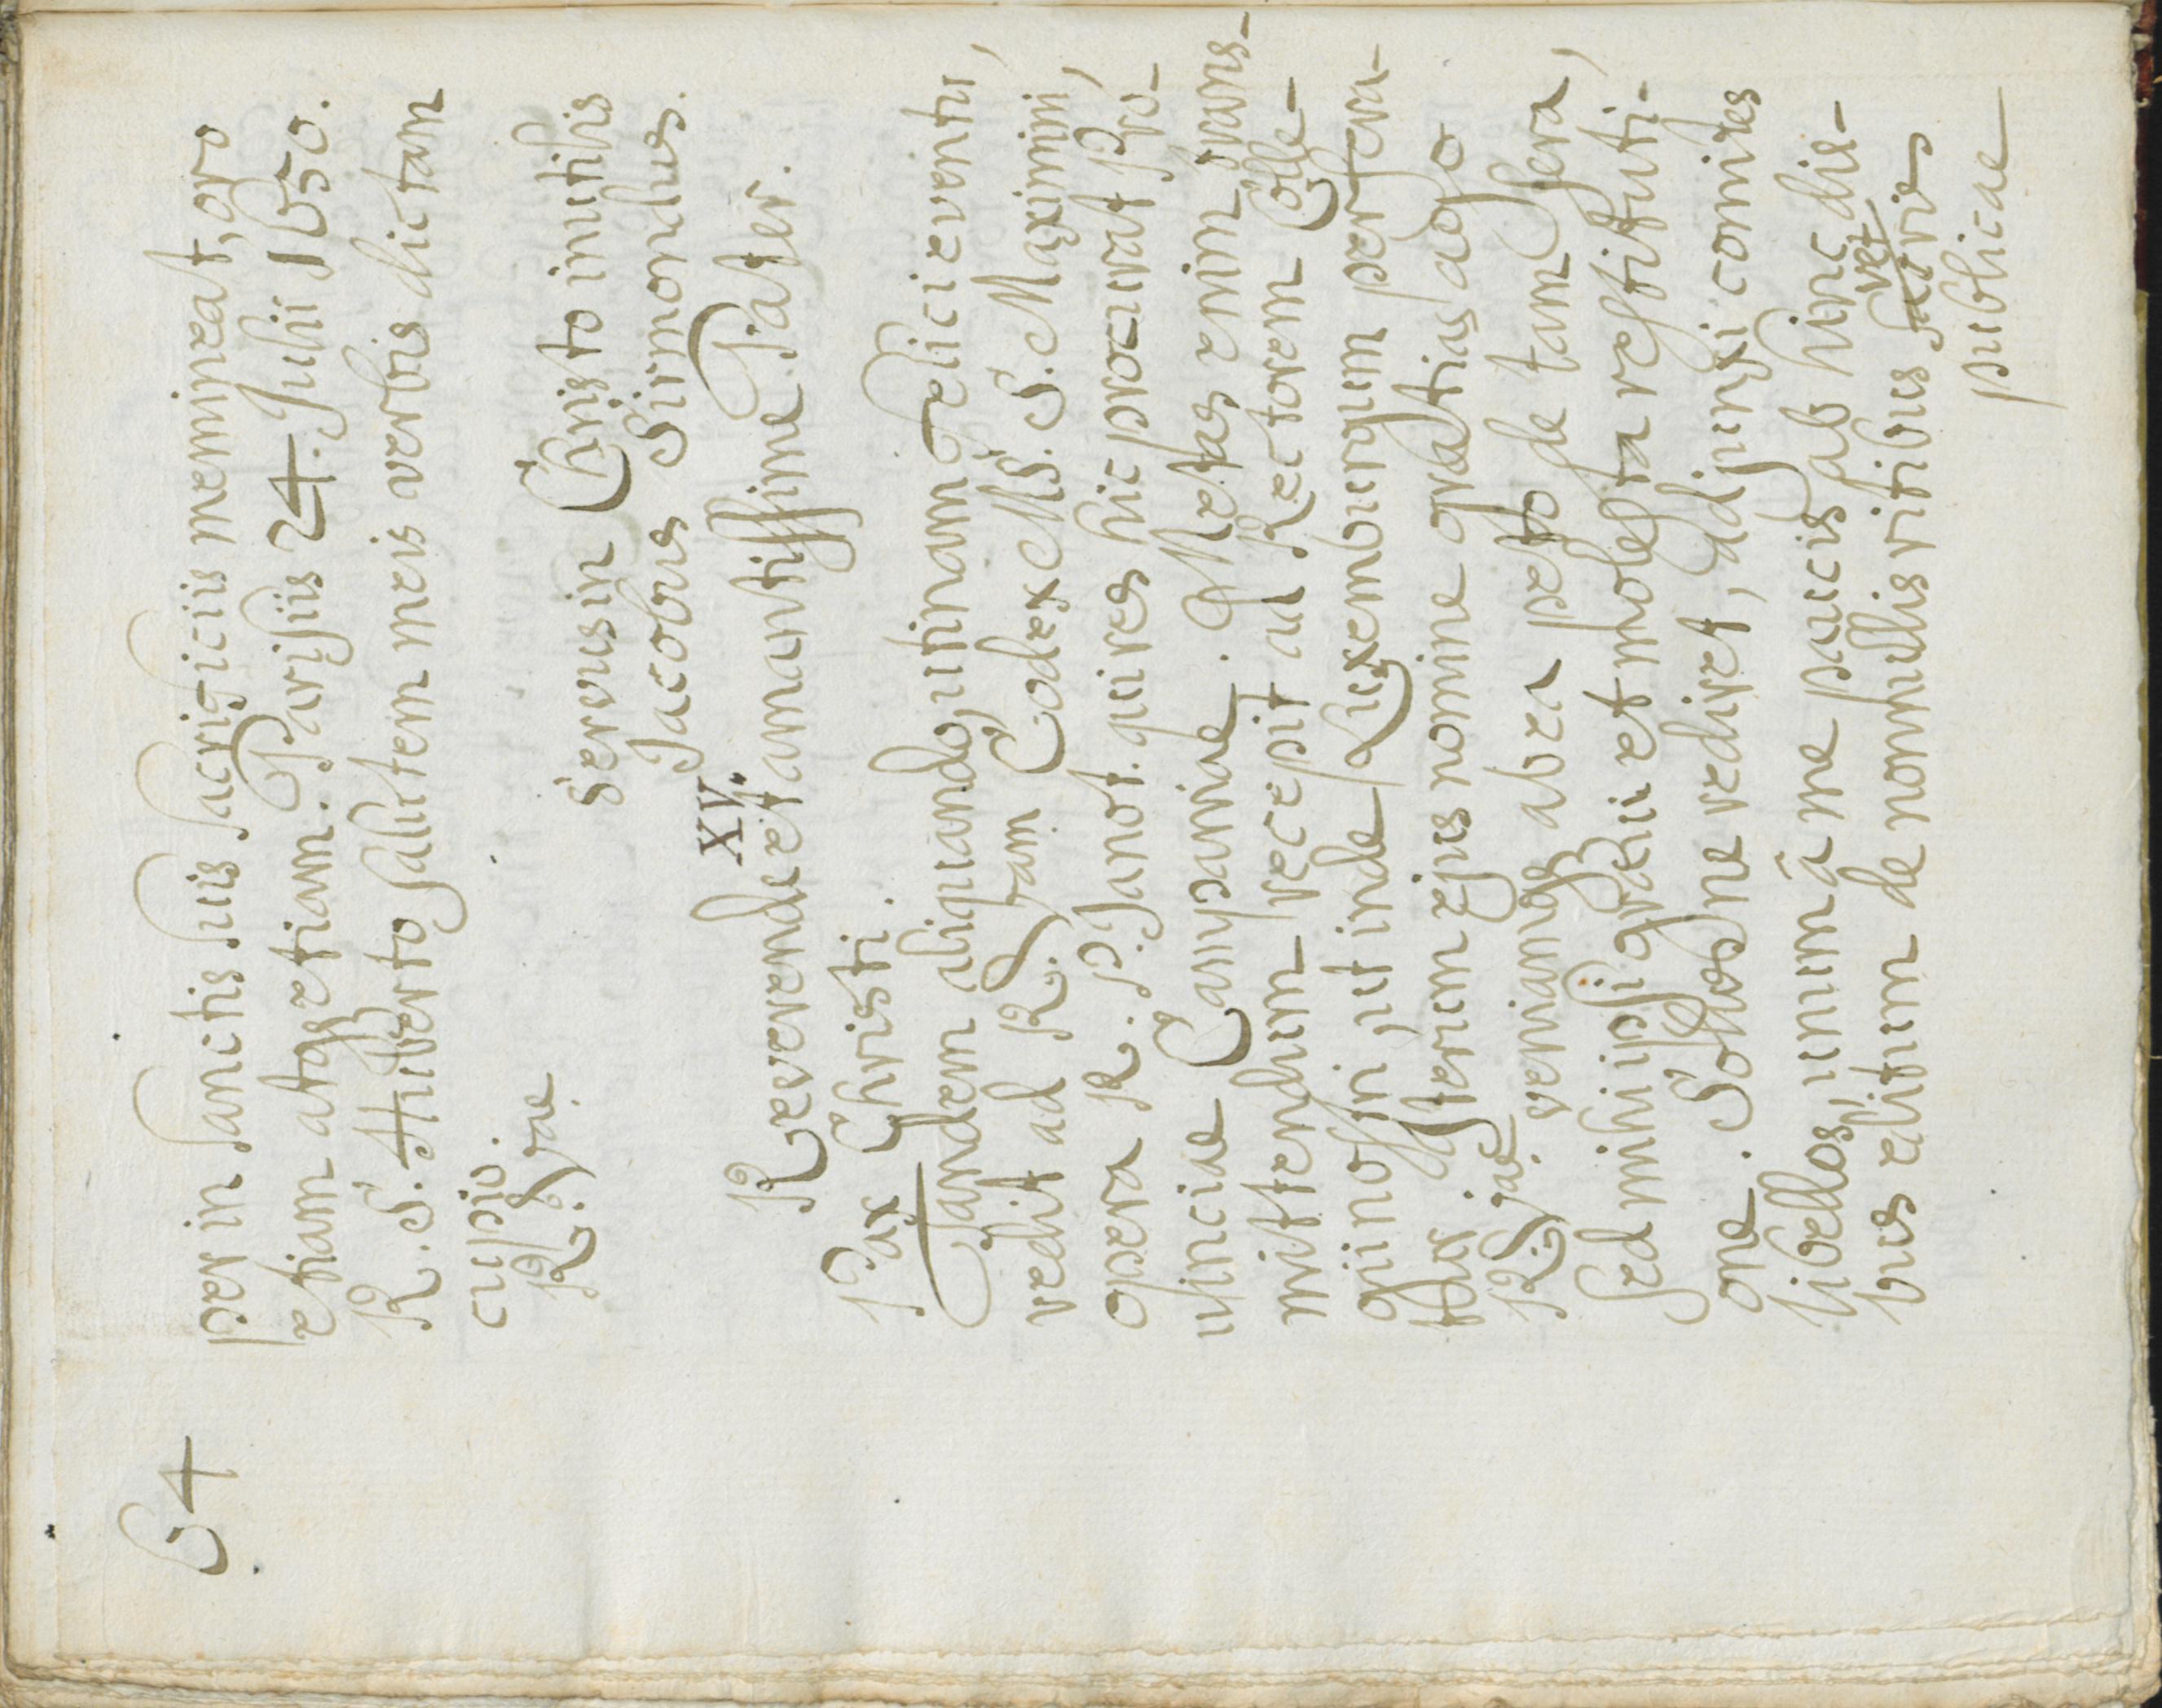 64
per in sanctis suis sacrificiis meminerit, oro
etiam atque etiam. Parisiis 24. Julii 1650.
R. P. Huberto salutem meis verbis dictam
cupio.
R. Vae.
Servus in Christo inutilis
Jacobus Sirmondus.
XV.
Reverende et amantissime Pater.
Pax Christi.
Tandem aliquando, utinam felici eventu,
redit ad R. Vam Codex MS. S. Maximini,
opera R. P. Janot. qui res hic procurat Pro-
vinciae Campaniae. Metas enim trans-
mittendum recepit ad Rectorem Colle-
gii nostri, ut inde Luxemburgum perfera-
tur. Iterum ejus nomine gratias ago
R. Vae. veniamque ab ea peto de tam sera,
sed mihi ipsi gravi et molesta restituti-
one. Solus ne rediret, adjunxi comites
libellos, unum â me paucis ab hinc die-
bus editum de nonnullis ritibus vet
publicae